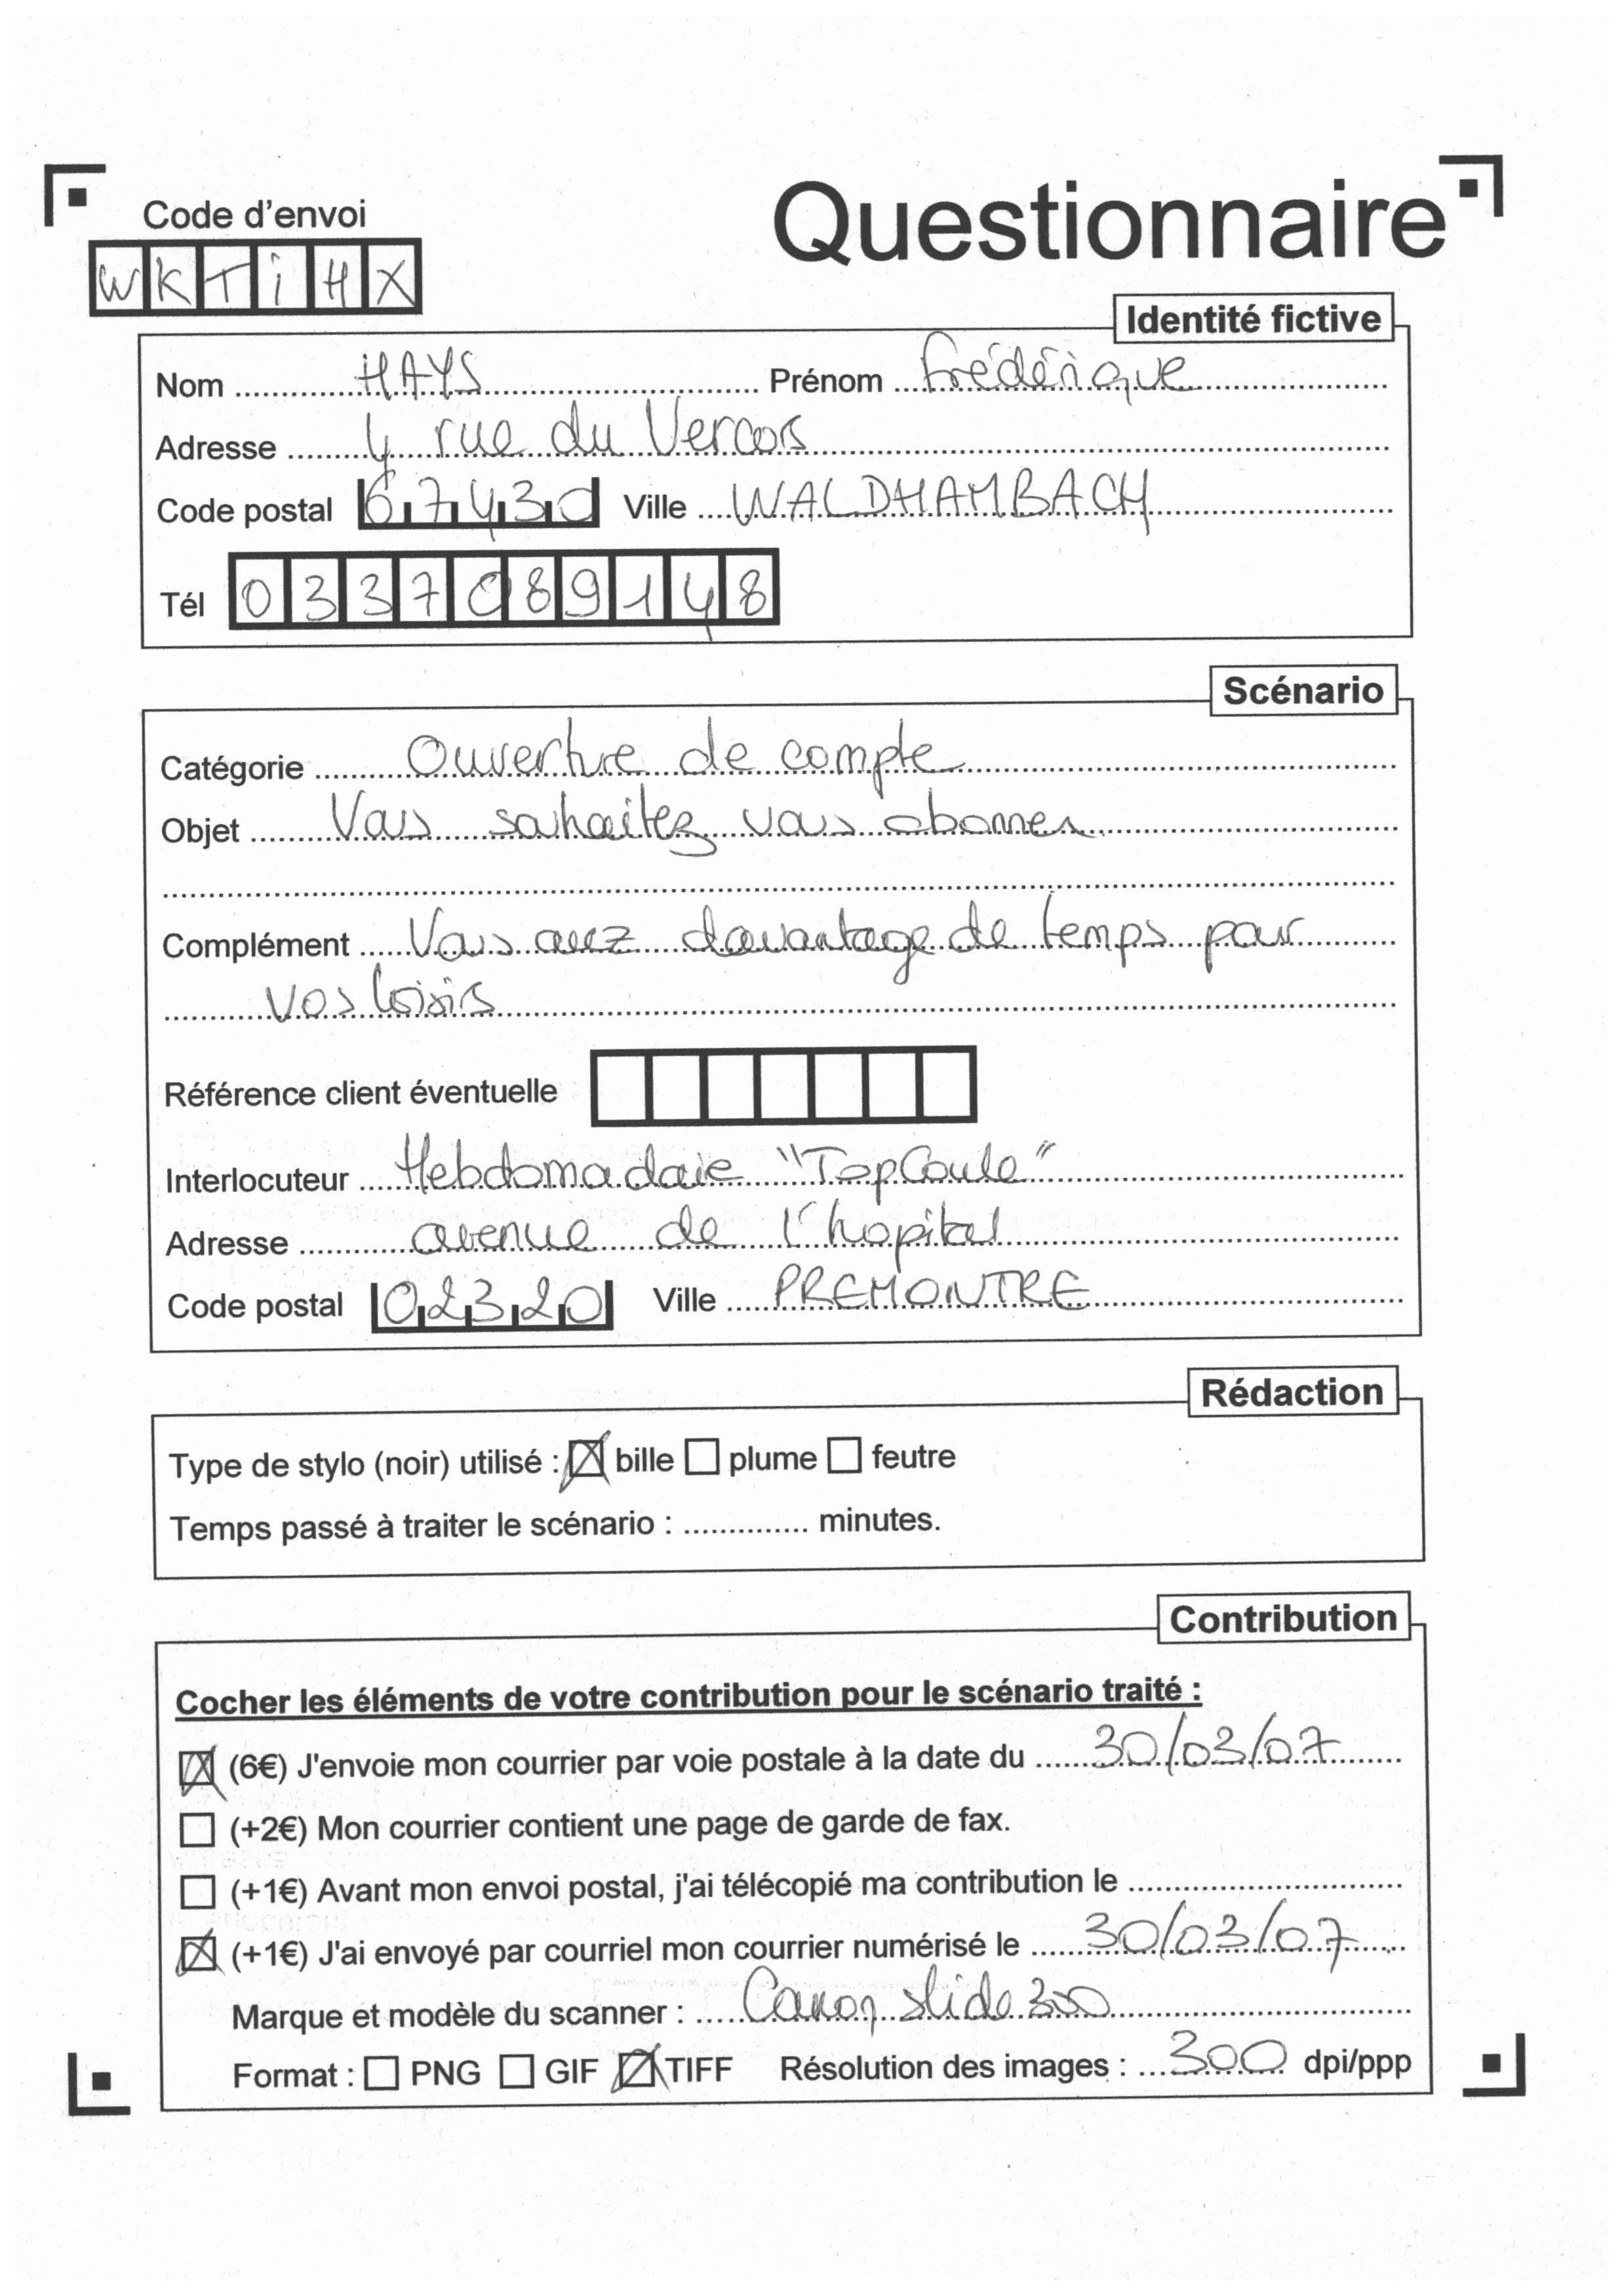 Questionnaire
Code d'envoi
WKTiHX
Identité fictive
Nom HAYS Prénom Frédérique
Adresse 4 rue du Vercors
Code postal 67430 Ville WALDHAMBACH
Tél 0337089148
Scénario
Catégorie Ouverture de compte
Objet Vous souhaitez vous abonner.
Complément Vous avez davantage de temps pour
vos loisirs
Référence client éventuelle
Interlocuteur Hebdomadaire "TopCoule"
Adresse avenue de l'hopital
Code postal 02320 Ville PREMONTRE
Rédaction
Type de stylo (noir) utilisé : bille plume feutre
Temps passé à traiter le scénario : .............. minutes.
Contribution
Cocher les éléments de votre contribution pour le scénario traité :
(6€) J'envoie mon courrier par voie postale à la date du 30/03/07
(+2€) Mon courrier contient une page de garde de fax.
(+1€) Avant mon envoi postal, j'ai télécopié ma contribution le
(+1€) J'ai envoyé par courriel mon courrier numérisé le 30/03/07
Marque et modèle du scanner : Canon slide 300
Format : PNG GIF TIFF Résolution des images : 300 dpi/ppp